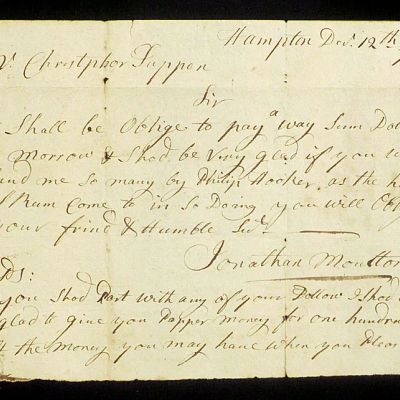 Hampton Decr. 12th
Mr. Christpher Tappen
Sir
Shall be Oblige to pay a way Sum Dol
Morrow & Shod be Very glad if you w
Send me So many by Philip Hooker, as the h
of Rum Come to in So Doing you will Ob
your frind & Humble Servt.
Jonathan Moulton
PS:
you Shod Part with any of your Dollow I Shod
glad to give you Papper money for one hundre
the money you may have when you Pleas